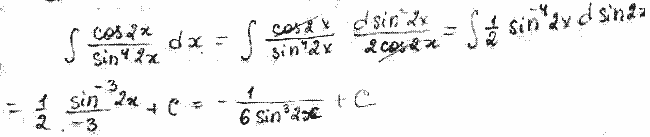 ∫ cos2x / sin⁴2x dx = ∫ cos2x / sin⁴2x dsin2x / 2cos2x = ∫ 1/2 sin⁻⁴2x d sin2x
= 1/2 sin⁻³2x / -3 + C = - 1 / 6 sin³2x + C